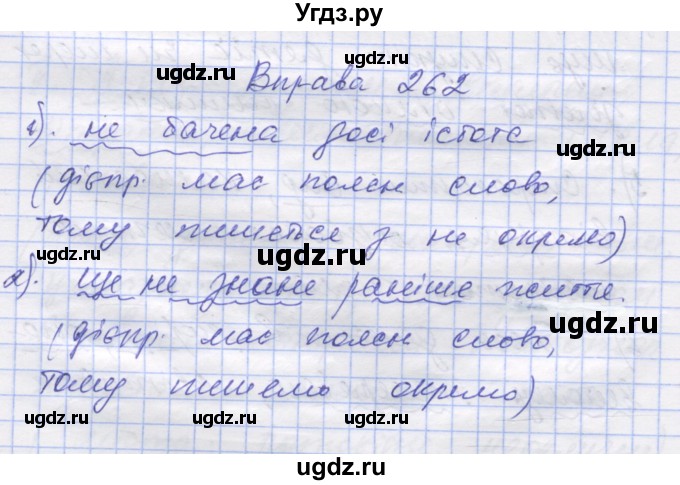 Угдз.ру
ugdz.ru ugdz.ru
Вправа 262
ugdz.ru ugdz.ru
1). не бачена досі істота
(дієпр. має поясн слово,
тому пишеться з не окремо)
ugdz.ru ugdz.ru ugdz.ru
2). ще не знане раніше життє.
ugdz.ru
(дієпр. має поясн слово,
ugdz.ru
тому пишемо окремо)
ugdz.ru ugdz.ru ugdz.ru
ugdz.ru